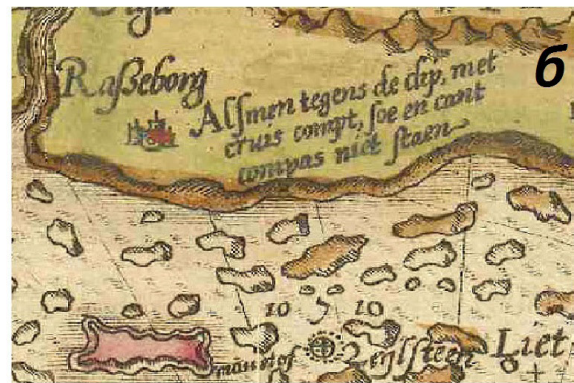 Raßeborg
Alſmen tegens de clip, met
cruis compt, ſoe en cant
compas niet ſtaen
б
10 10
Zeylſteen
Liet